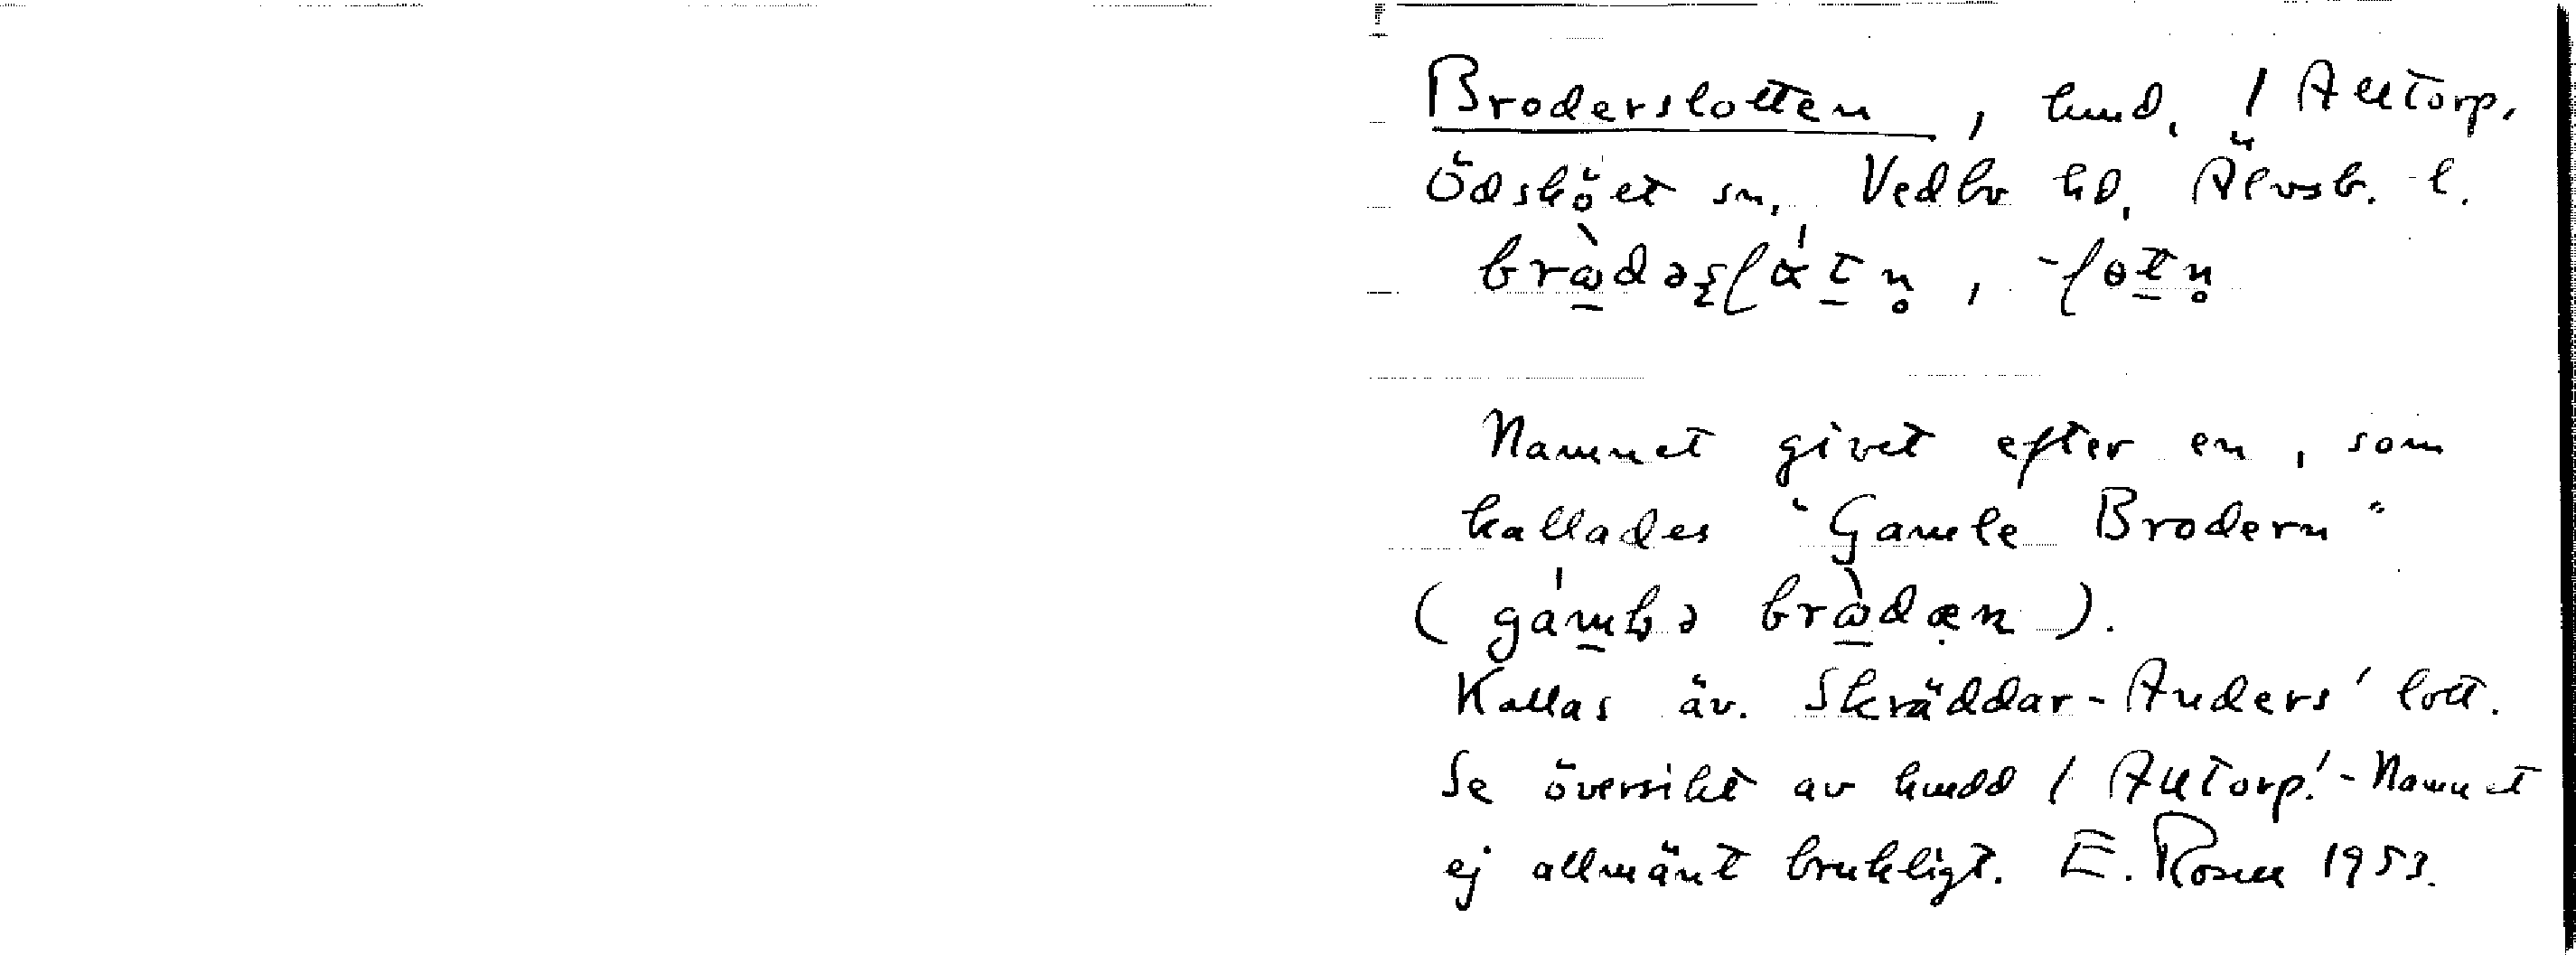 Broderslotten, hmd. 1 Alltorp,
Ödskölt sn, Vedbo hd, Älvsb. l.
Namnet givet efter en, som
kallades "Gamle Brodern"
Kallas äv. Skräddar-Anders' lott.
Se översikt av hmdd 1 Alltorp! - Namnet
ej allmänt brukligt. E. Rosell 1953.